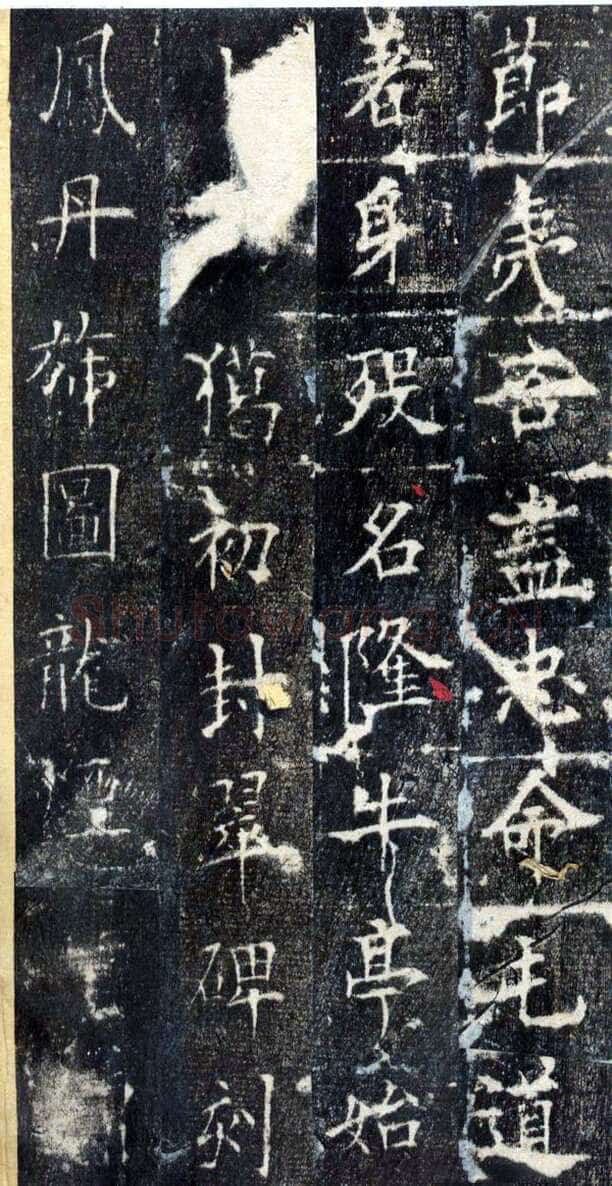 節盡忠命屯道
著身殁名隆牛亭始
獵初封翠碑刻
鳳丹旐圖龍煙
Shufawang.CN